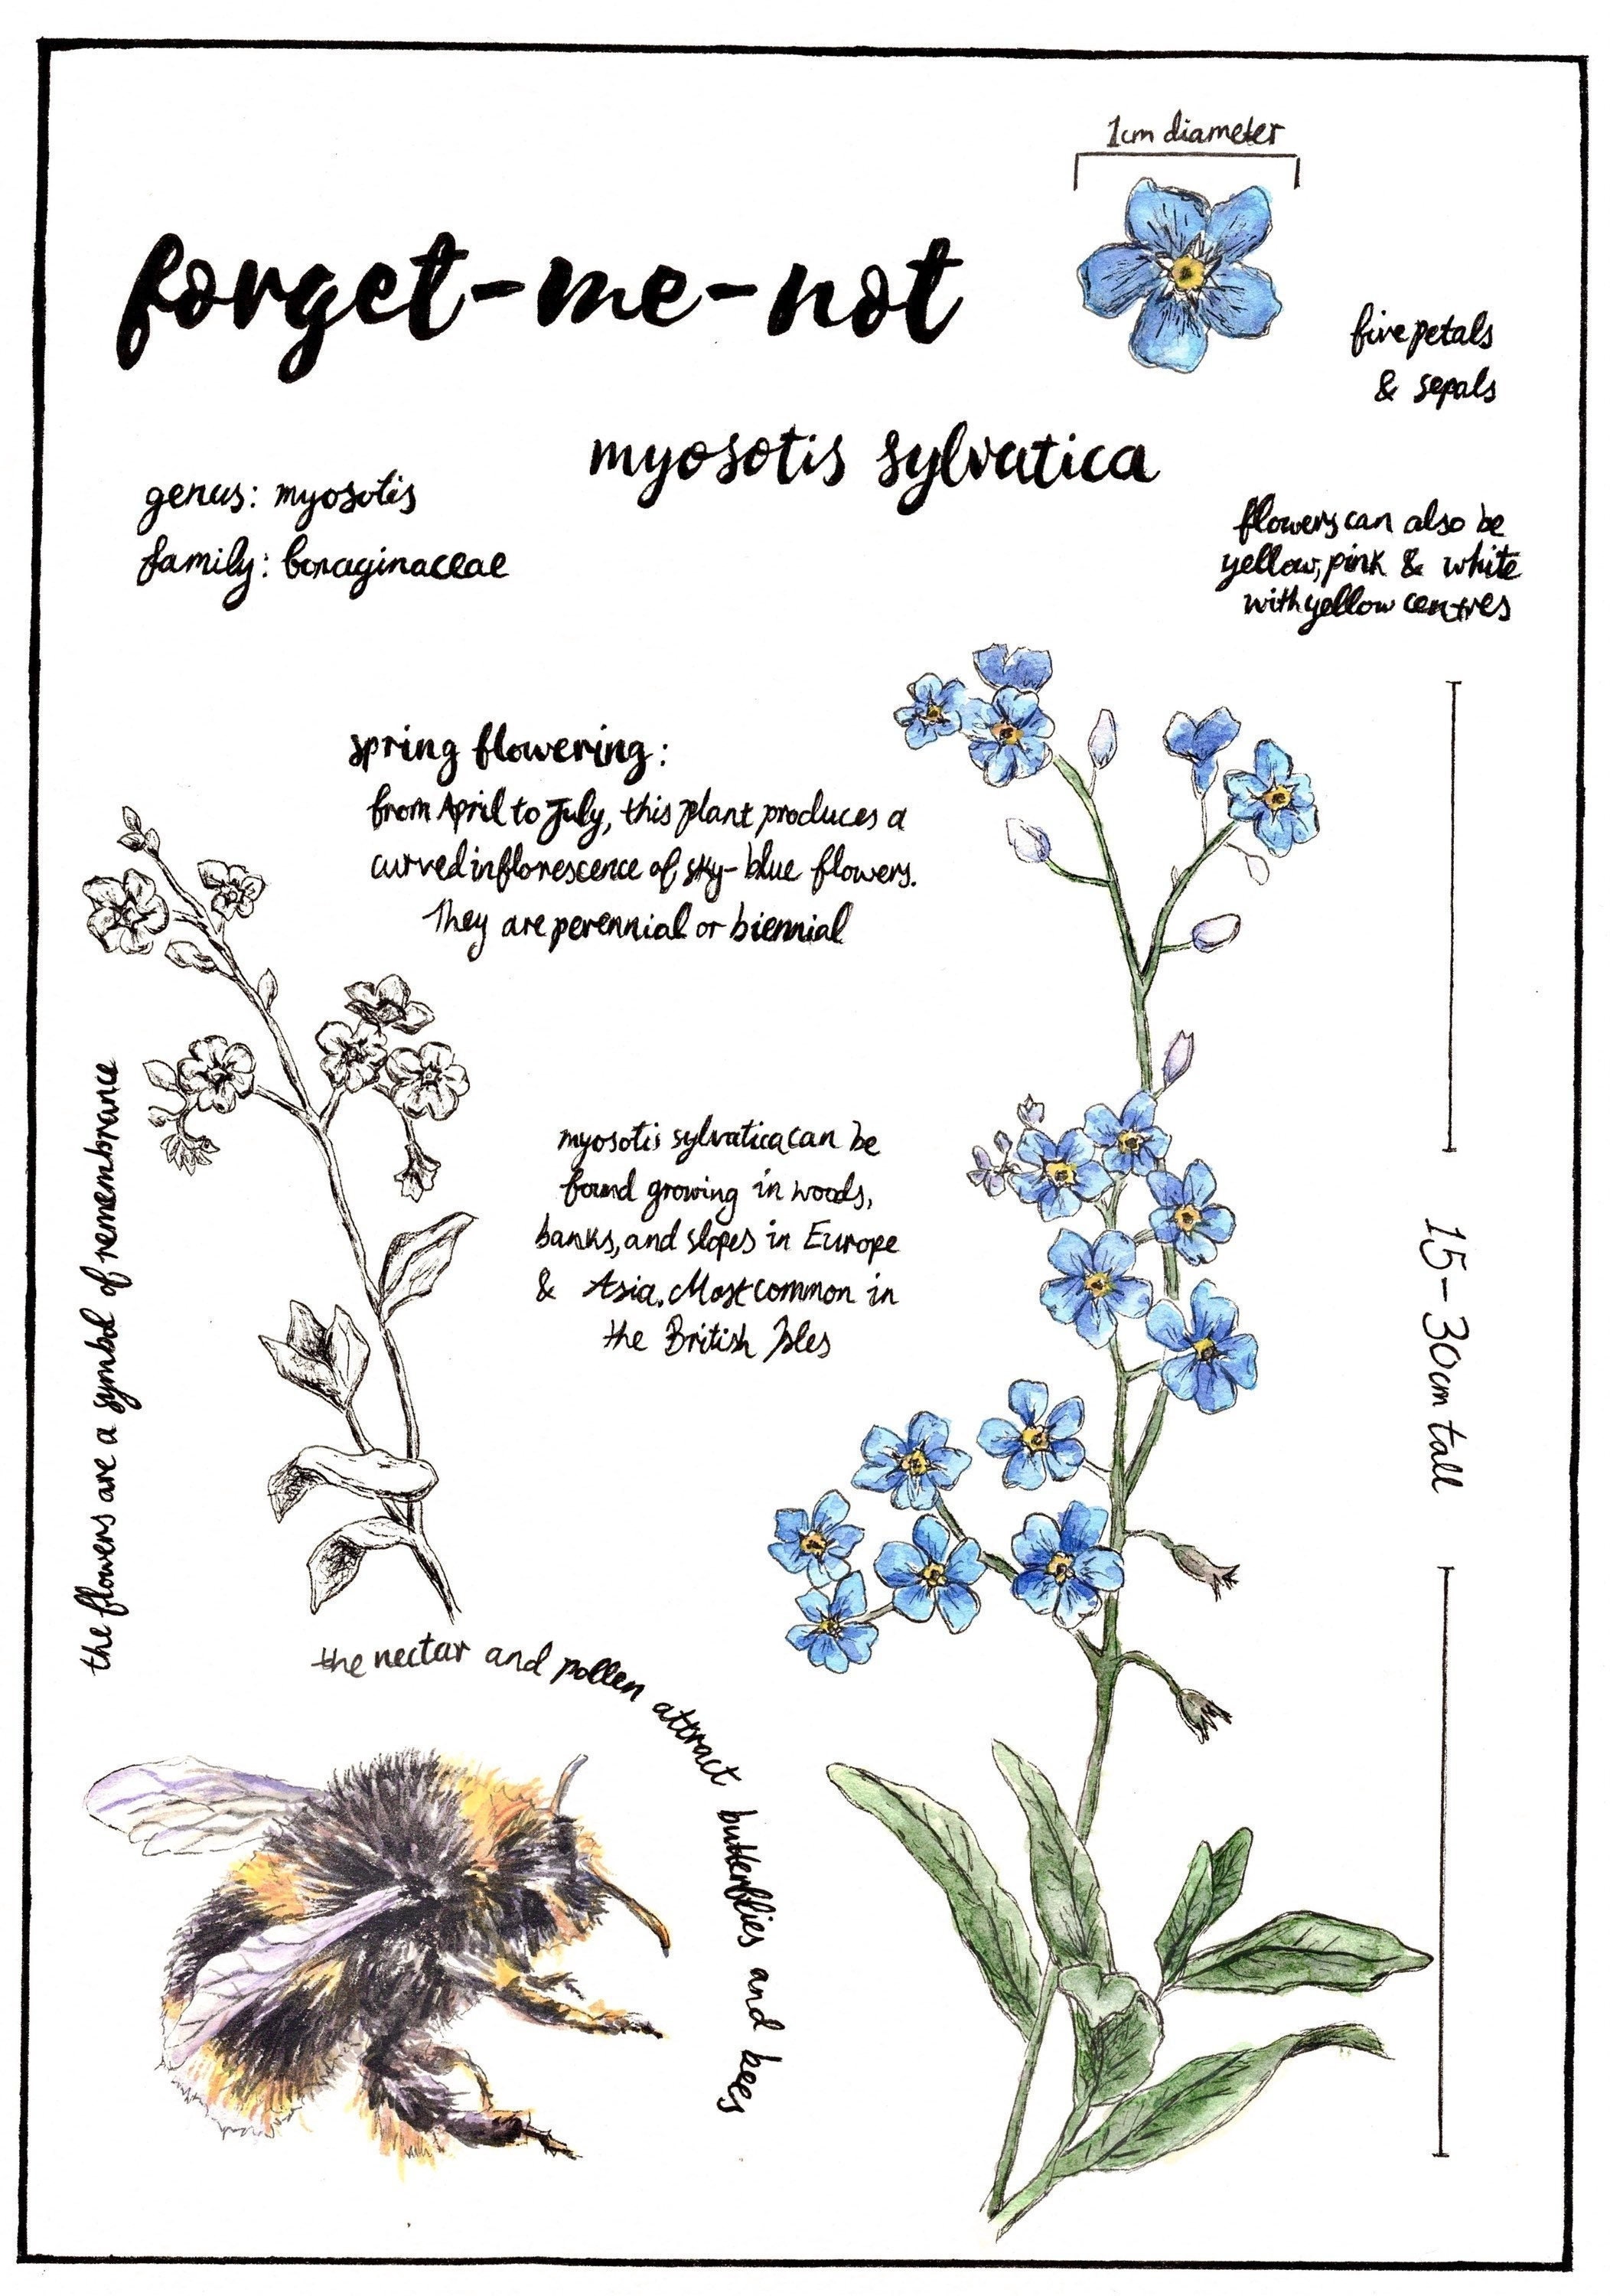 1cm diameter
forget-me-not
five petals
& sepals
myosotis sylvatica
genus: myosotis
family: boraginaceae
flowers can also be
yellow, pink & white
with yellow centres
spring flowering:
from April to July, this plant produces a
curved inflorescence of sky-blue flowers.
They are perennial or biennial
myosotis sylvatica can be
found growing in woods,
banks, and slopes in Europe
& Asia. Most common in
the British Isles
15-30cm tall
the flowers are a symbol of remembrance
the nectar and pollen attract butterflies and bees